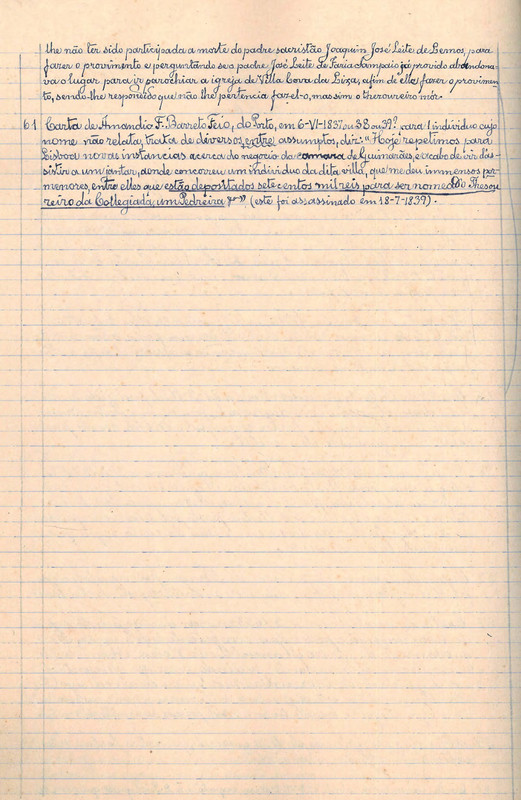 lhe não ter sido participada a morte do padre sacristão Joaquim José Leite de Lemos, para
fazer o provimento e perguntando se o padre José Leite de Faria Sampaio já provido abandona-
va o lugar para ir parochiar a igreja de Villa Cova da Lixa, afim de elle fazer o provimen-
to, sendo-lhe respondido que não lhe pertencia fazel-o, mas sim o thesoureiro mór.
61 Carta de Amandio F. Barreto Feio, do Porto, em 6-VI-1837 ou 38 ou 39? para 1 individuo cujo
nome não relata, trata de deversos entre assumptos, diz: "Hoje repetimos para
Lisboa novas instancias acerca do negocio da camara de Guimarães, e acabo de vir d'as-
sistir a um jantar, aonde concorreu um individuo da dita villa, que me deu immensos por-
menores, entre elles que estão depositados sete centos mil reis para ser nomeado Thesou-
reiro da Collegiada, um Pedreira " (este foi assassinado em 18-7-1839).